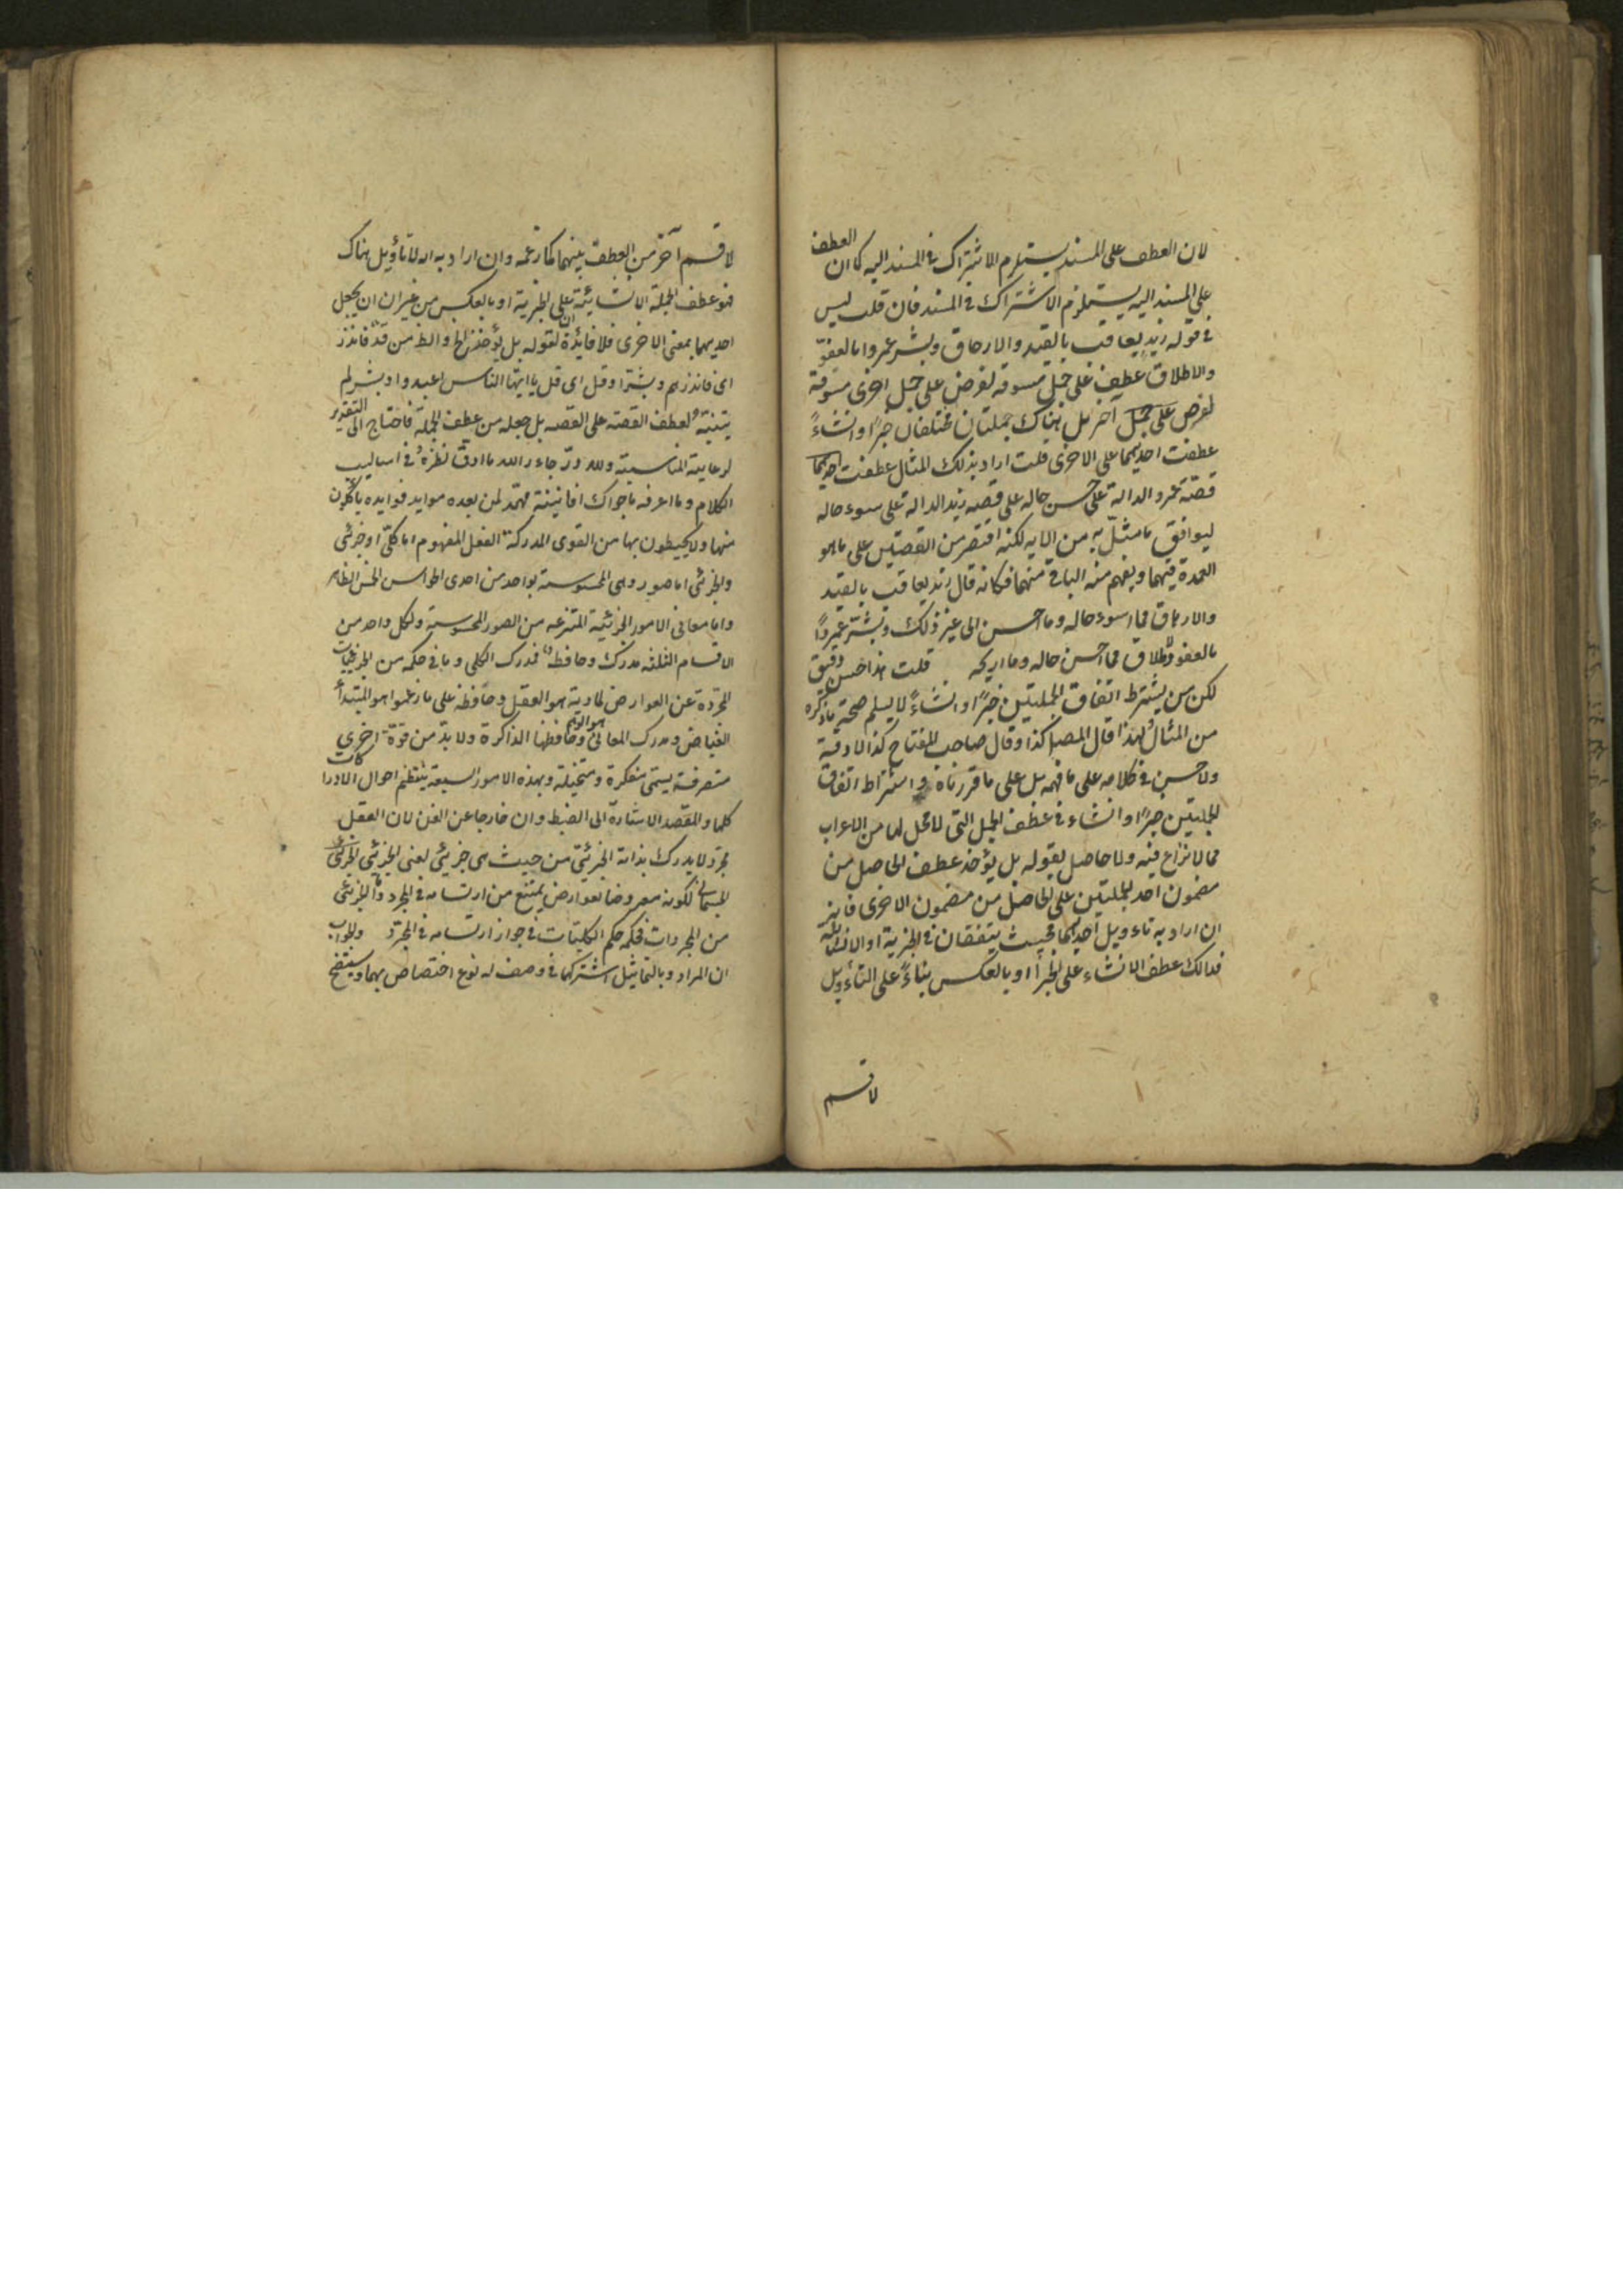 لان العطف على المسند يستلزم الاشتراك في المسند اليه كما ان العطف
على المسند اليه يستلزم الاشتراك في المسند فان قلت ليس
في قوله زيد يعاقب بالقيد والارهاق وبشر عمروا بالعفو
والاطلاق عطف على جمل مسوقة لغرض على جمل اخرى مسوقة
لغرض على جمل آخر بل هناك جملتان مختلفان خبرًا وانشاءً
عطفت احديهما على الاخرى قلت اراد بذلك المثال عطفت احديهما
قصة عمرو الدالة على حسن حاله على قصة زيد الدالة على سوء حاله
ليوافق ما مثل به من الايه لكنه اقتصر من القصتين على ما هو
العمدة فيهما ويفهم منه الباقي منهما فكانه قال زيد يعاقب بالقيد
والارهاق فما اسوء حاله وما احسن الى غير ذلك وبشر عمروًا
بالعفو والاطلاق فما احسن حاله وما اربحه قلت هذا حسن دقيق
لكن من يشترط اتفاق الجملتين خبرًا وانشاءً لا يسلم صحة ما ذكره
من المثال ولهذا قال المصنف كذا وقال صاحب المفتاح كذا لا دقة
ولا حسن في كلامه على ما فهمه بل على ما قررناه و اشتراط اتفاق
الجملتين خبرًا وانشاء في عطف الجمل التي لا محل لها من الاعراب
مما لا نزاع فيه ولا حاصل لقوله بل يؤخذ عطف الحاصل من
مضمون احد الجملتين على الحاصل من مضمون الاخرى فانه
ان اراد به تاءويل احديهما بحيث يتفقان في الخبرية او الانشائية
فذالك عطف الانشاء على الخبر او بالعكس بناءً على التأويل
لا قسم
لا قسم آخر من العطف بينهما كما زعمه وان اراد به انه لا تأويل هناك
فهو عطف الجملة الانشائية على الخبرية او بالعكس من غير ان يجعل
احديهما بمعنى الاخرى فلا فائدة لقوله بل يؤخذ الخ والظ من قد فانذر
اى فانذرهم وبشر او قل اى قل يا ايها الناس اعبدوا وبشر لم
يتنبه لعطف القصة على القصه بل جعله من عطف الجملة فاحتاج الى التقدير
لرعاية المناسبة ولله در جاء ر الله ما ادق نظره في اساليب
الكلام وما اعرفه باجواك افانينه مهد لمن بعده موايد فوايده ياكلون
منها ولا يحيطون بها من القوى المدركة العقل المفهوم اما كلى او جزئى
والجزئى اما صور وهى المحسوسة بواحد من احدى الحواس الخمس الظاهر
واما معانى الامور الجزئية المنتزعه من الصور المحسوسة ولكل واحد من
الاقسام الثلثه مدرك وحافظ فمدرك الكلى وما في حكمه من الجزئيات
المجردة عن العوارض المادية هو العقل وحافظه على ما زعموا هو المبتدأ
الفياض ومدرك المعانى هو الوهم وحافظها الذاكرة ولا بد من قوة اخرى
متصرفة يسمى مفكرة ومتخيلة وبهذه الامور السبعة ينتظم احوال الادراكات
كلها والمقصد الاشارة الى الضبط وان خارجا عن الفن لان العقل
مجرد لا يدرك بذاته الجزئى من حيث هى جزئي يعنى الجزئى الجزئى
الجسمانى لكونه معروضا لعوارض يمتنع من ارتسامه في المجرد واما الجزئى
من المجردات فحكمه حكم الكليات في جواز ارتسامه في المجرد والجواب
ان المراد وبالتماثل اشتراكهما في وصف له نوع اختصاص بهما وسيتضح